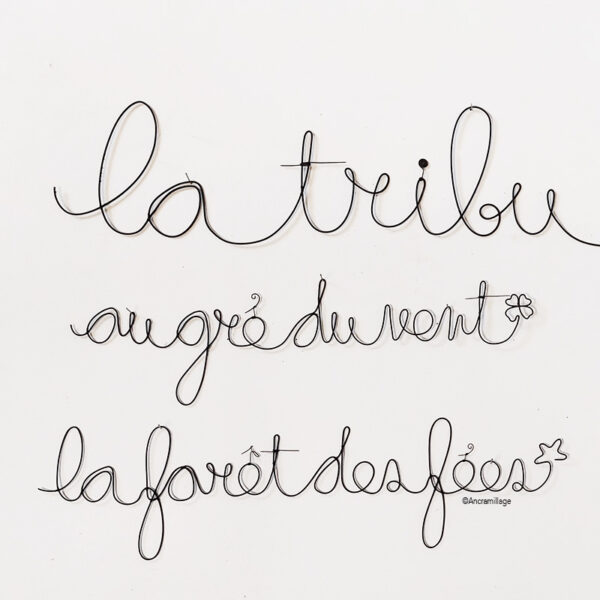 la tribu
au gré du vent
la forêt des fées
©Ancramillage